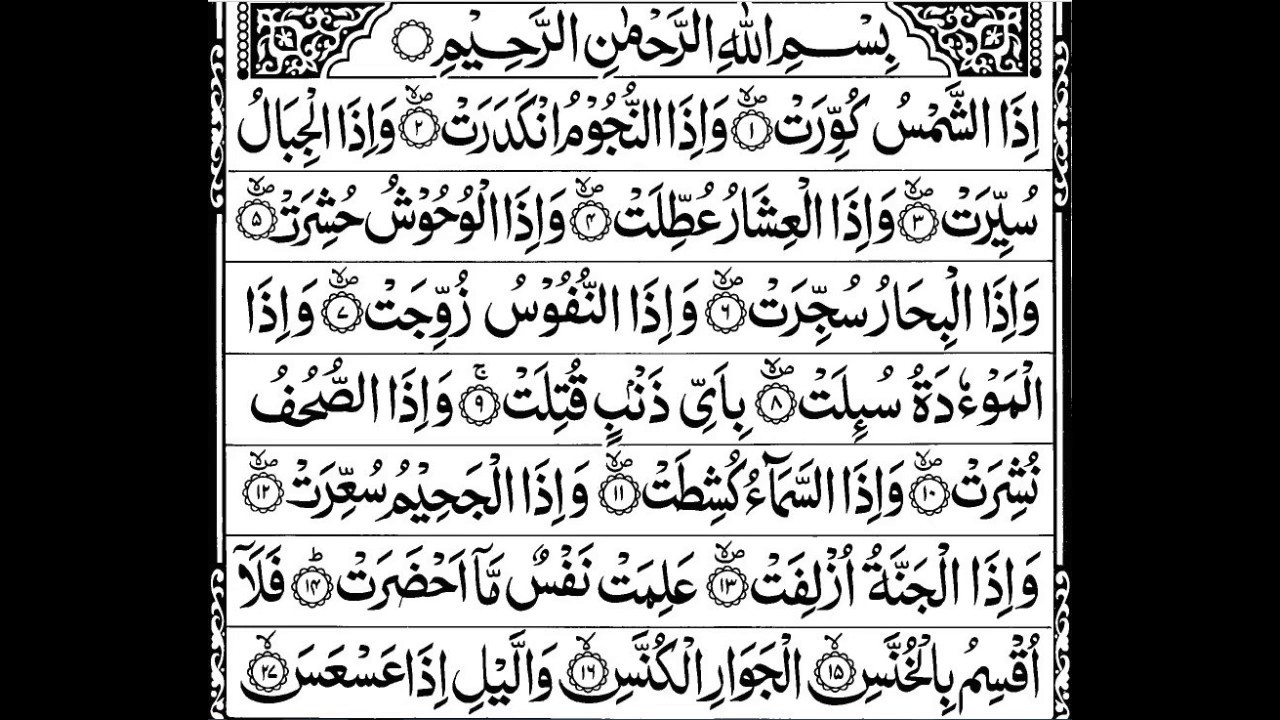 بِسْمِ اللّٰهِ الرَّحْمٰنِ الرَّحِيْمِ
اِذَا الشَّمْسُ كُوِّرَتْ ۙ۱ وَاِذَا النُّجُوْمُ انْكَدَرَتْ ۙ۲ وَاِذَا الْجِبَالُ
سُيِّرَتْ ۙ۳ وَاِذَا الْعِشَارُ عُطِّلَتْ ۙ۴ وَاِذَا الْوُحُوْشُ حُشِرَتْ ۙ۵
وَاِذَا الْبِحَارُ سُجِّرَتْ ۙ۶ وَاِذَا النُّفُوْسُ زُوِّجَتْ ۙ۷ وَاِذَا
الْمَوْءٗدَةُ سُىِٕلَتْ ۙ۸ بِاَىِّ ذَنْۢبٍ قُتِلَتْ ۚ۹ وَاِذَا الصُّحُفُ
نُشِرَتْ ۙ۱۰ وَاِذَا السَّمَآءُ كُشِطَتْ ۙ۱۱ وَاِذَا الْجَحِيْمُ سُعِّرَتْ ۙ۱۲
وَاِذَا الْجَنَّةُ اُزْلِفَتْ ۙ۱۳ عَلِمَتْ نَفْسٌ مَّاۤ اَحْضَرَتْ ؕ۱۴ فَلَاۤ
اُقْسِمُ بِالْخُنَّسِ ۙ۱۵ الْجَوَارِ الْكُنَّسِ ۙ۱۶ وَالَّيْلِ اِذَا عَسْعَسَ ۙ۲۷